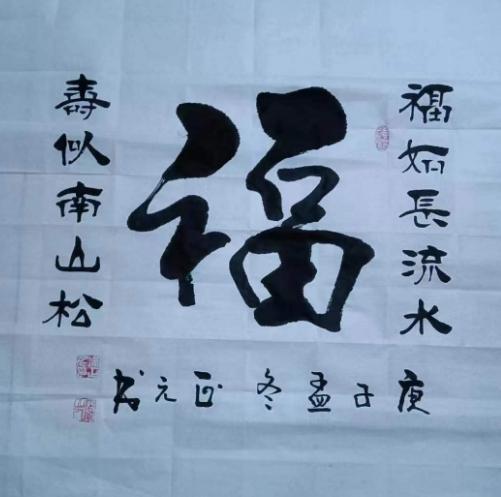 福如長流水
福
壽似南山松
庚子孟冬 正元書